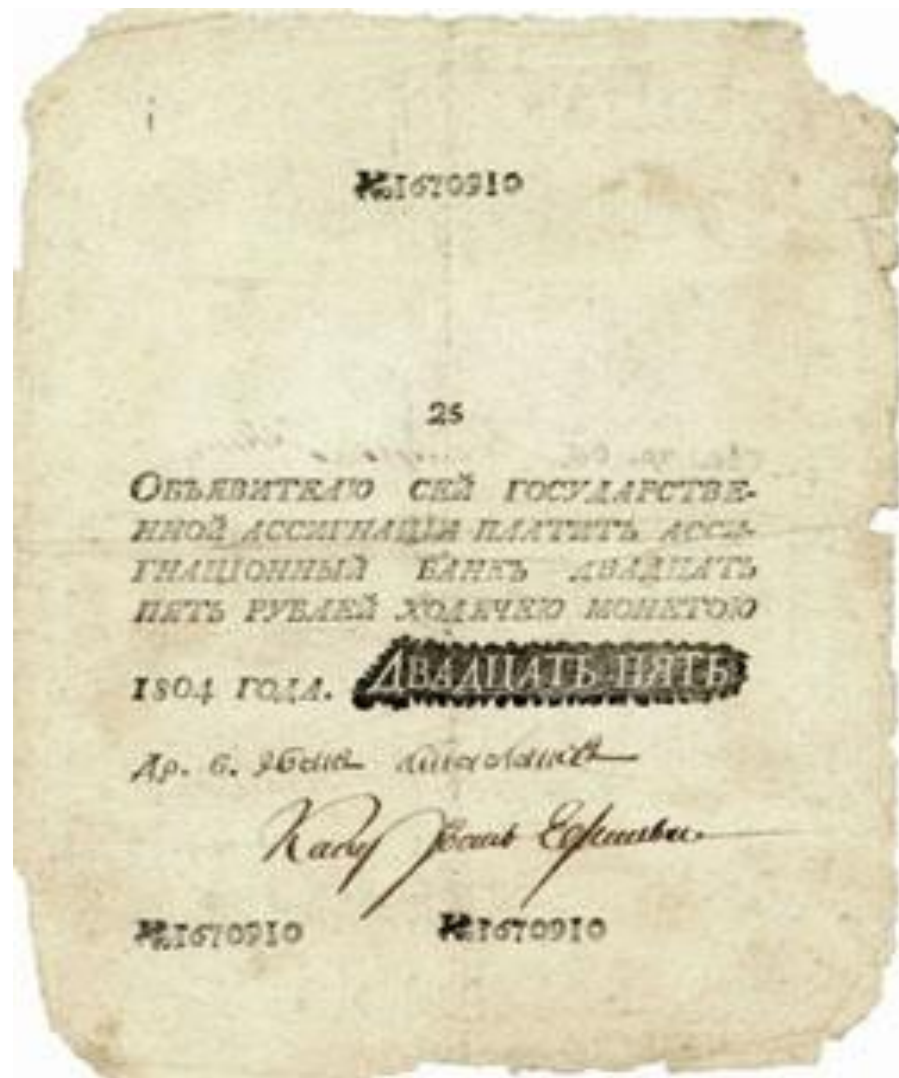 №1670910
25
ОБЪЯВИТЕЛЮ СЕЙ ГОСУДАРСТВЕ-
ННОЙ АССИГНАЦІИ ПЛАТИТЪ АССИ-
ГНАЦІОННЫЙ БАНКЪ ДВАДЦАТЬ
ПЯТЬ РУБЛЕЙ ХОДЯЧЕЮ МОНЕТОЮ
1804 ГОДА. ДВАДЦАТЬ ПЯТЬ
Др. С. Иванъ
Иванъ
№1670910 №1670910